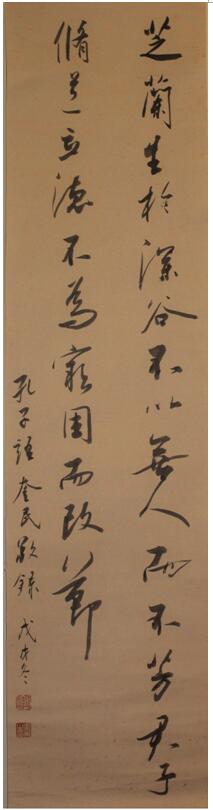 芝蘭生於深谷不以無人而不芳君子
脩道立德不為窮困而改節
孔子語奎民敬錄戊戌冬